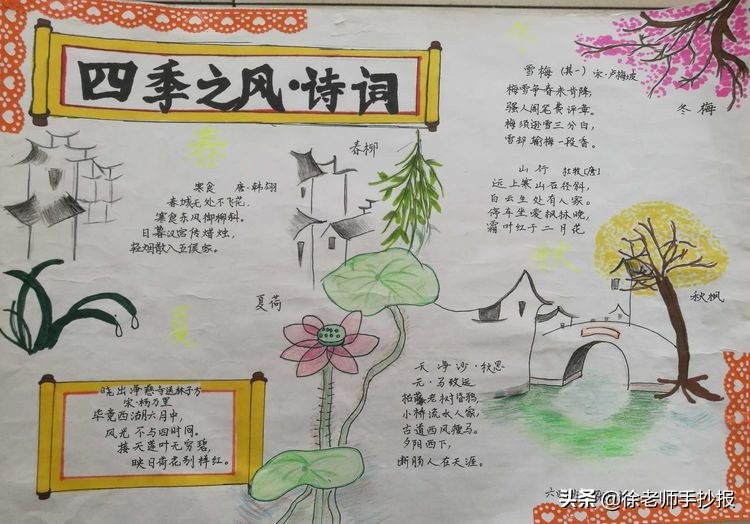 四季之风·诗词
冬
雪梅(其一) 宋·卢梅坡
梅雪争春未肯降,
骚人阁笔费评章。
梅须逊雪三分白,
雪却输梅一段香。
冬梅
山行 杜牧[唐]
远上寒山石径斜,
白云生处有人家。
停车坐爱枫林晚,
霜叶红于二月花
秋
秋枫
春
春柳
寒食 唐·韩翃
春城无处不飞花,
寒食东风御柳斜。
日暮汉宫传蜡烛,
轻烟散入五侯家。
夏
夏荷
晓出净慈寺送林子方
宋·杨万里
毕竟西湖六月中,
风光不与四时同。
接天莲叶无穷碧,
映日荷花别样红。
天净沙·秋思
元·马致远
枯藤老树昏鸦,
小桥流水人家,
古道西风瘦马。
夕阳西下,
断肠人在天涯。
头条 @徐老师手抄报